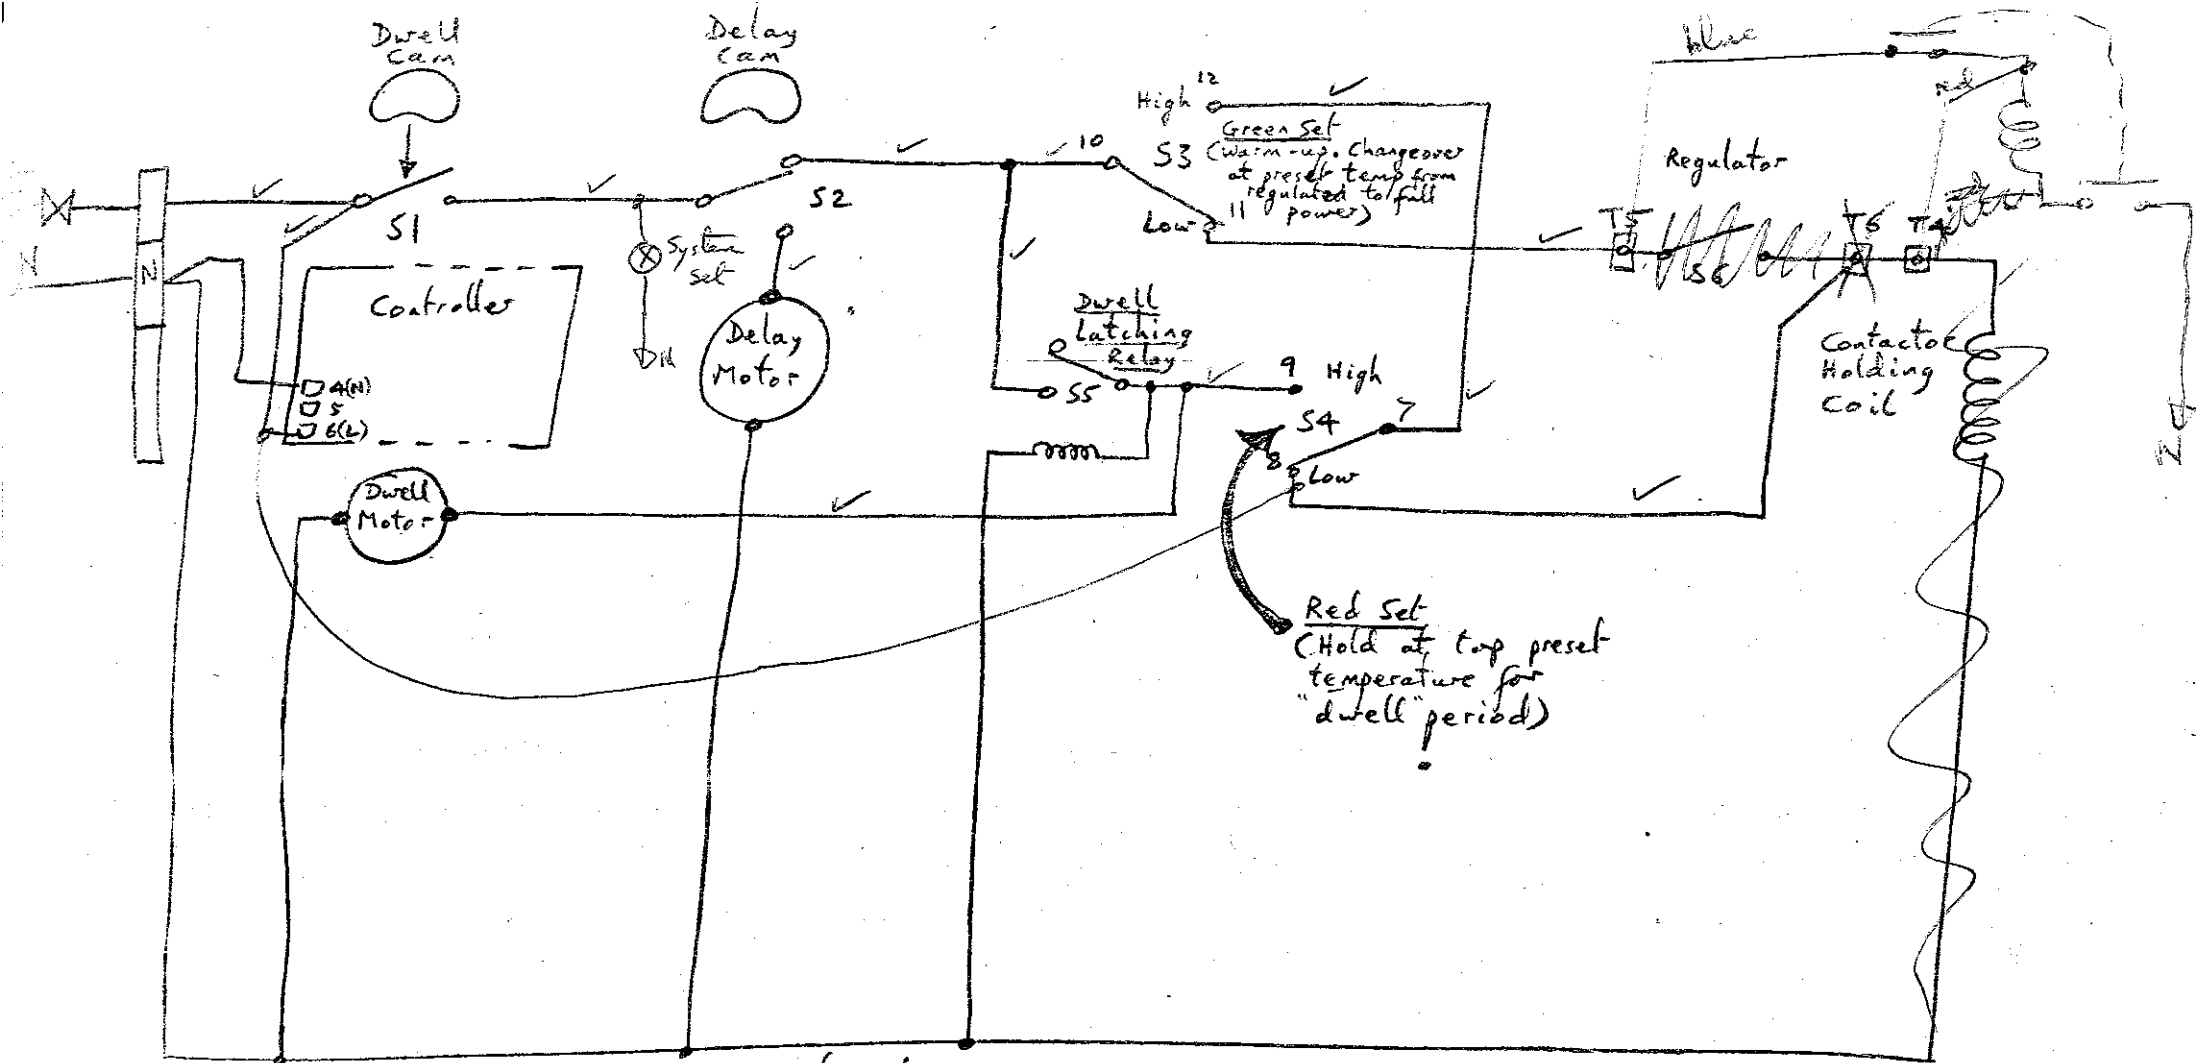 Dwell
Cam
Delay
Cam
blue
red
High 12
10
S3
Green Set
(Warm-up. Changeover
at preset temp from
regulated to full
power)
11
Low
Regulator
S1
S2
N
N
System
Set
N
T5
S6
T6
T4
Controller
Delay
Motor
Dwell
Latching
Relay
S5
9 High
S4
7
8
Low
Contactor
Holding
Coil
N
4(N)
5
6(L)
Dwell
Motor
Red Set
(Hold at top preset
temperature for
"dwell" period)